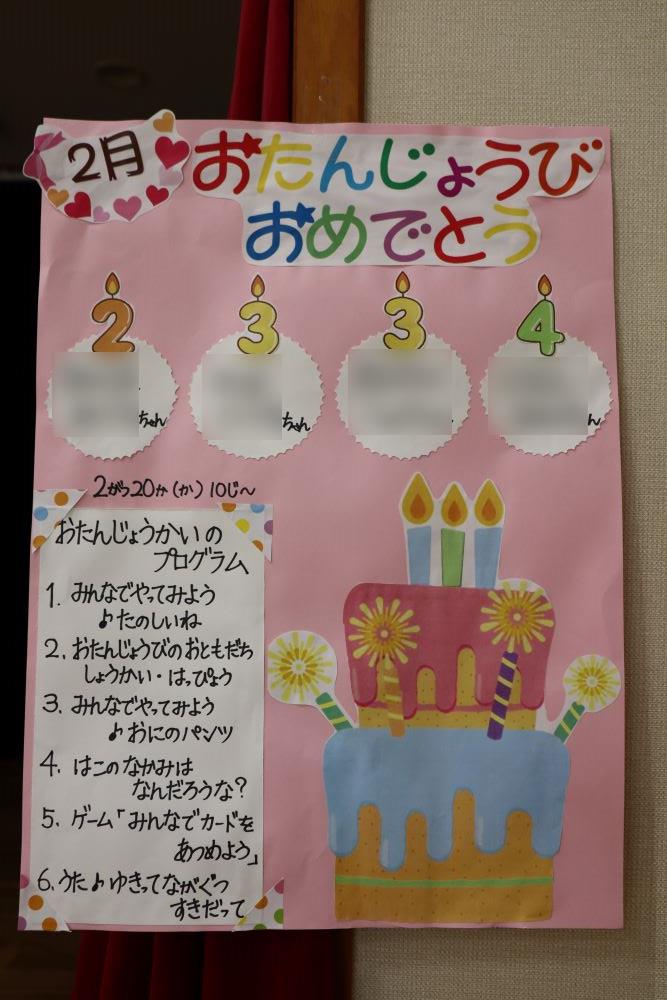 2月
おたんじょうび
おめでとう
2 3 3 4
ちゃん ちゃん ん
2がつ20か(か) 10じ～
おたんじょうかいの
プログラム
1. みんなでやってみよう
♪たのしいね
2. おたんじょうびのおともだち
しょうかい・はっぴょう
3. みんなでやってみよう
♪おにのパンツ
4. はこのなかみは
なんだろうな?
5. ゲーム「みんなでカードを
あつめよう」
6. うた♪ゆきってながぐつ
すきだって